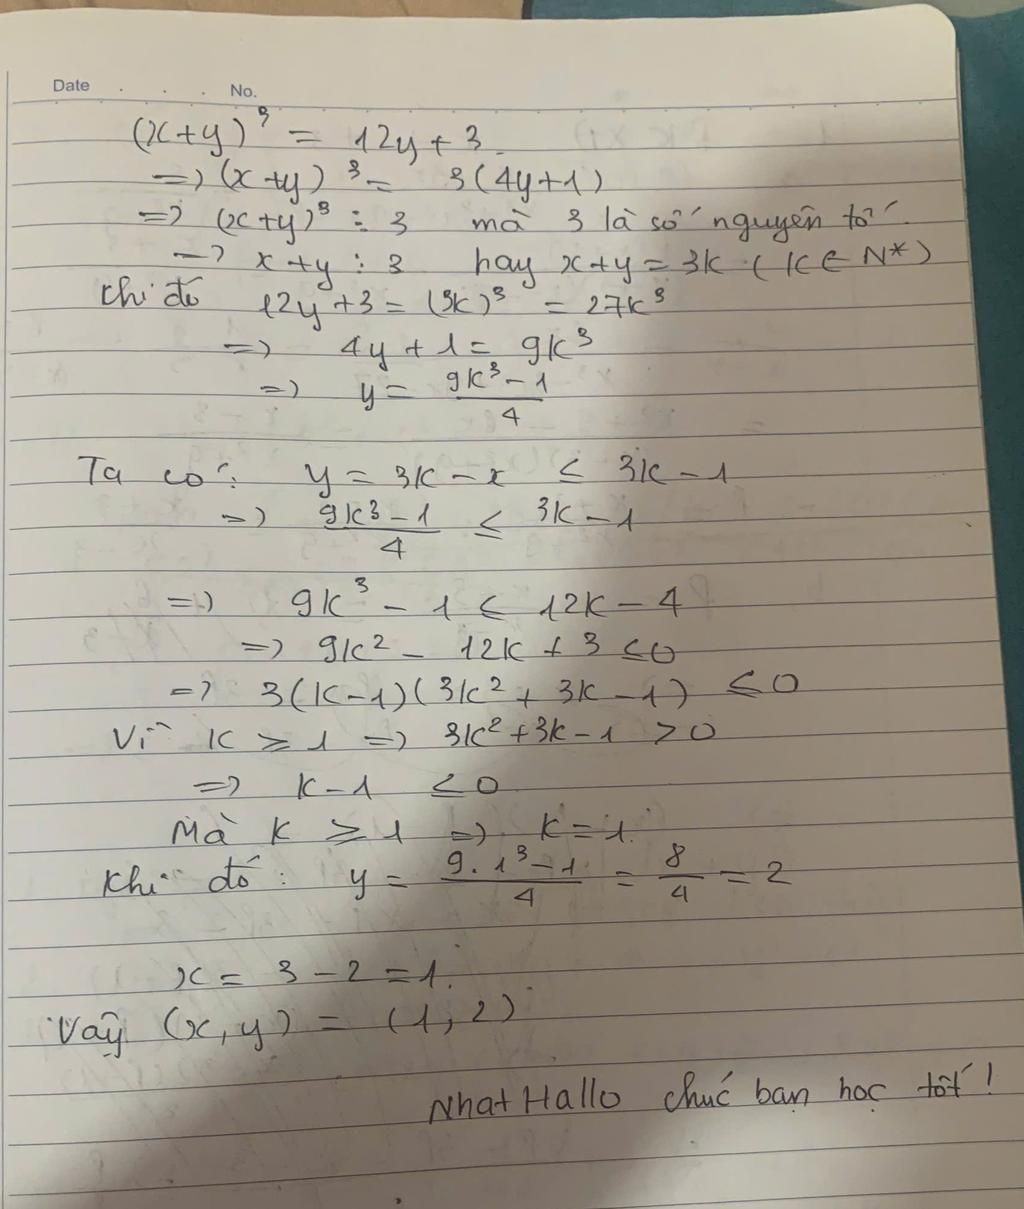 Date . . . No.
(x+y)³ = 12y + 3
=> (x+y)³ = 3(4y+1)
=> (x+y)³ ⋮ 3 mà 3 là số nguyên tố.
=> x+y ⋮ 3 hay x+y = 3k (K ∈ N*)
Khi đó 12y+3 = (3k)³ = 27k³
=> 4y + 1 = 9k³
=> y = \frac{9k³ - 1}{4}
Ta có: y = 3k - x ≤ 3k - 1
=> \frac{9k³ - 1}{4} ≤ 3k - 1
=> 9k³ - 1 ≤ 12k - 4
=> 9k² - 12k + 3 ≤ 0
=> 3(k-1)(3k² + 3k - 1) ≤ 0
Vì k ≥ 1 => 3k² + 3k - 1 > 0
=> k - 1 ≤ 0
Mà k ≥ 1 => k = 1.
Khi đó: y = \frac{9.1³ - 1}{4} = \frac{8}{4} = 2
x = 3 - 2 = 1.
Vậy (x, y) = (1; 2)
Nhat Hallo chúc bạn học tốt!